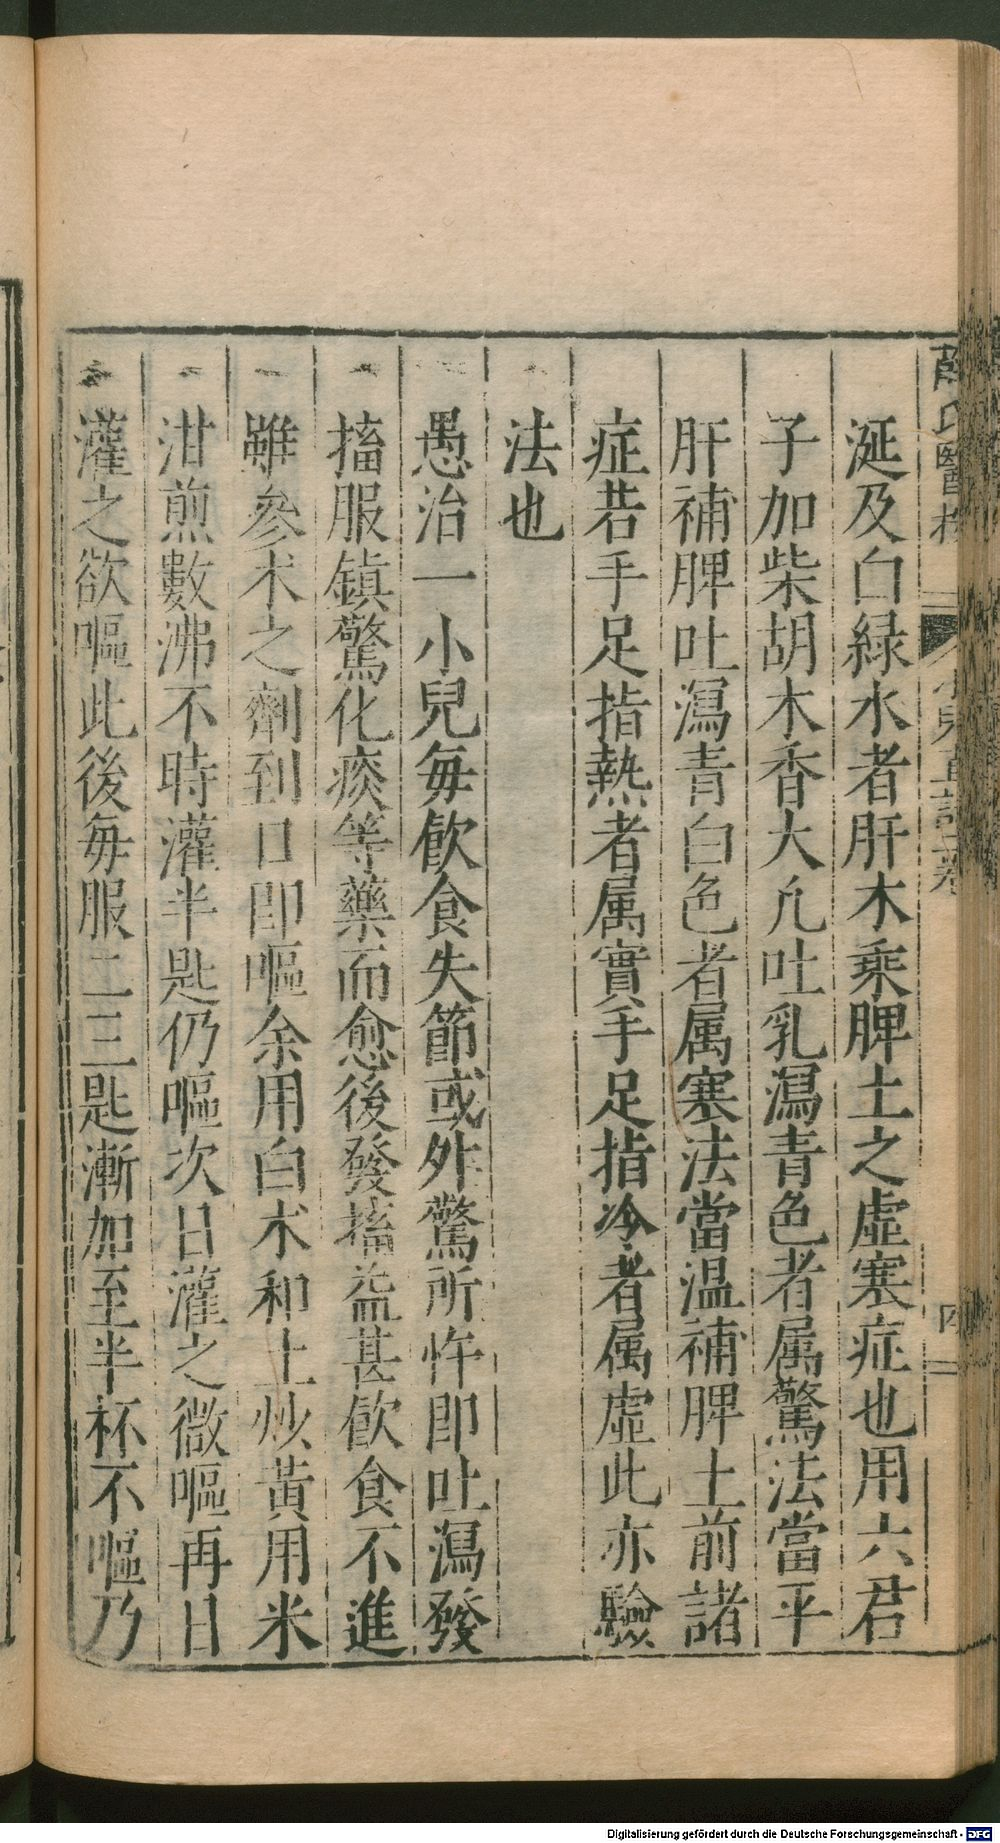 薛氏醫按 小兒直訣二卷 四
涎及白綠水者肝木乘脾土之虛寒症也用六君
子加柴胡木香大凡吐乳瀉青色者属驚法當平
肝補脾吐瀉青白色者属寒法當温補脾土前諸
症若手足指熱者属實手足指冷者属虛此亦驗
法也
愚治一小兒每飲食失節或外驚所忤即吐瀉發
搐服鎮驚化痰等藥而愈後發搐益甚飲食不進
雖參术之劑到口即嘔余用白术和土炒黃用米
泔煎數沸不時灌半匙仍嘔次日灌之微嘔再日
灌之欲嘔此後每服二三匙漸加至半杯不嘔乃
Digitalisierung gefördert durch die Deutsche Forschungsgemeinschaft - DFG